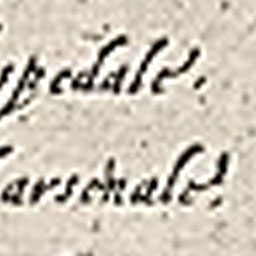 spedale.
arschale.